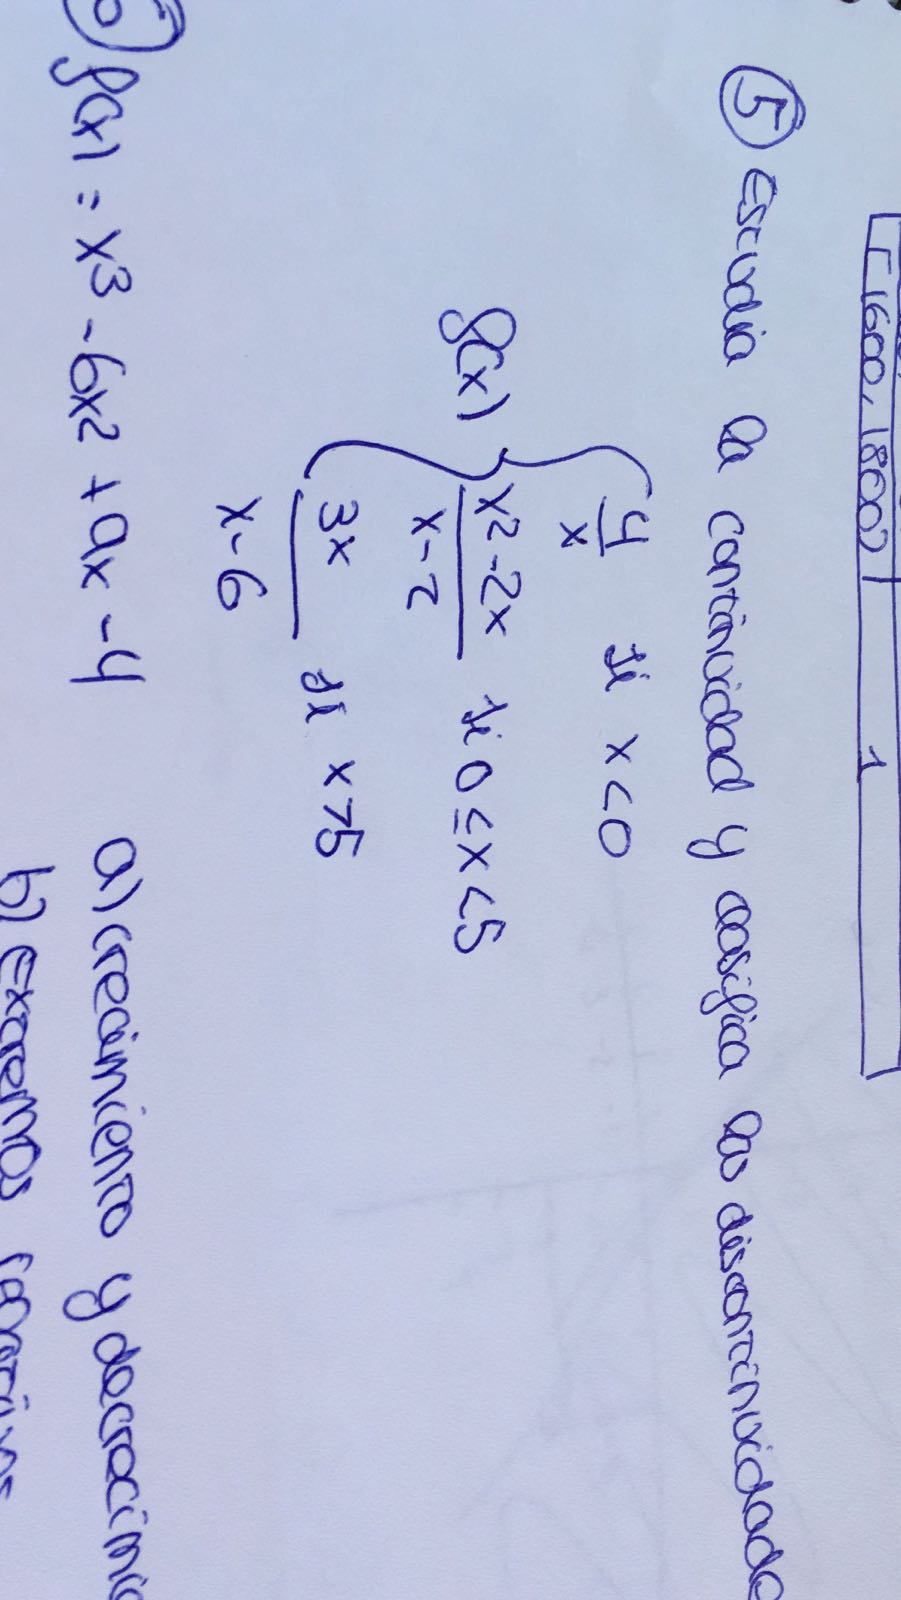 [1600, 1800) 1
⑤ Estudia la continuidad y clasifica las discontinuidade
f(x) { 4/x si x<0
x²-2x/x-2 si 0≤x<5
3x/x-6 si x>5
f(x) = x3 -6x2 +ax -4 a) crecimiento y decrecimie
b) Extremos relativos